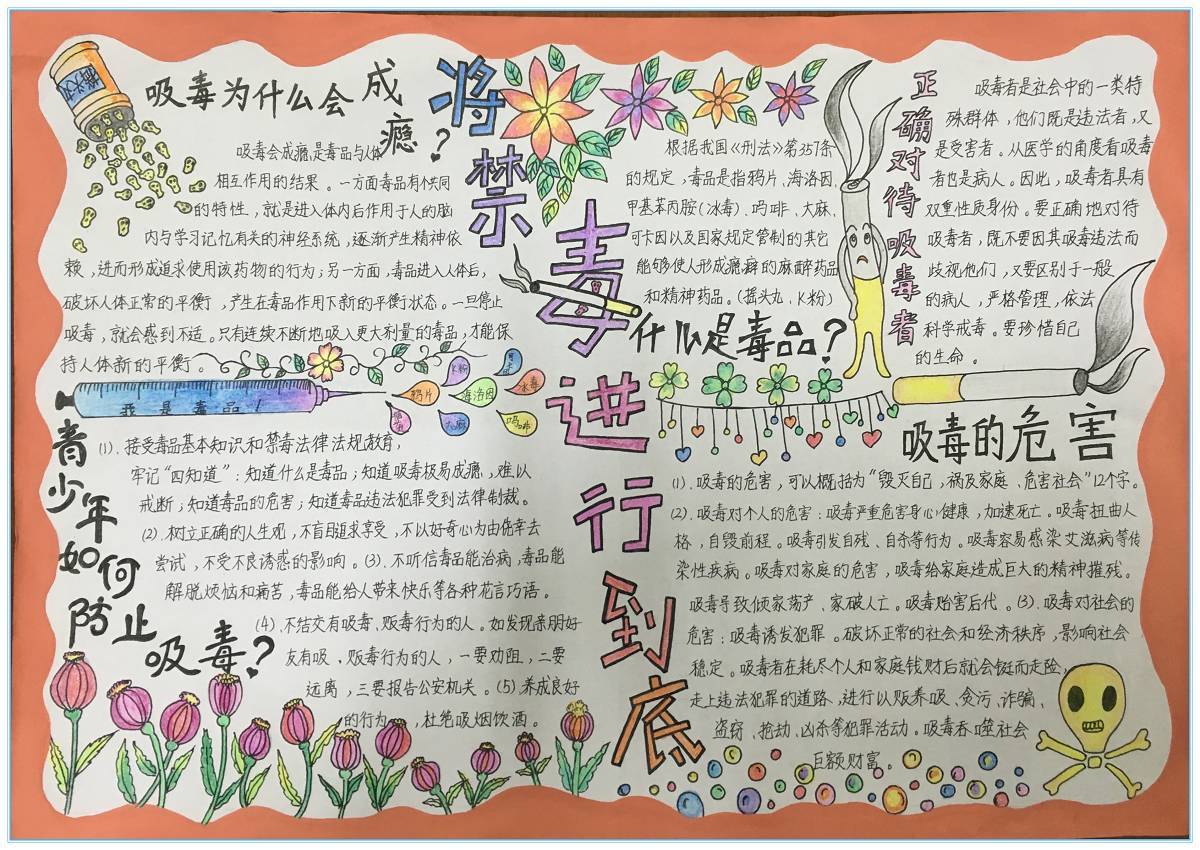 将
禁
毒
进
行
到
底
吸毒为什么会成
瘾？
吸毒会成瘾,是毒品与人体
相互作用的结果。一方面毒品有个共同
的特性，就是进入体内后作用于人的脑
内与学习记忆有关的神经系统，逐渐产生精神依
赖，进而形成追求使用该药物的行为；另一方面，毒品进入人体后，
破坏人体正常的平衡，产生在毒品作用下新的平衡状态。一旦停止
吸毒，就会感到不适。只有连续不断地吸入更大剂量的毒品，才能保
持人体新的平衡。
我是毒品！
鸦片
K粉
冰毒
海洛因
大麻
吗啡
根据我国《刑法》第357条
的规定，毒品是指鸦片、海洛因、
甲基苯丙胺(冰毒)、吗啡、大麻、
可卡因以及国家规定管制的其它
能够使人形成瘾癖的麻醉药品
和精神药品。(摇头丸、K粉)
什么是毒品？
正确对待吸毒者
吸毒者是社会中的一类特
殊群体，他们既是违法者，又
是受害者。从医学的角度看吸毒
者也是病人。因此，吸毒者具有
双重性质身份。要正确地对待
吸毒者，既不要因其吸毒违法而
歧视他们，又要区别于一般
的病人，严格管理，依法
科学戒毒。要珍惜自己
的生命。
青少年如何防止吸毒？
(1)．接受毒品基本知识和禁毒法律法规教育，
牢记“四知道”：知道什么是毒品；知道吸毒极易成瘾，难以
戒断；知道毒品的危害；知道毒品违法犯罪受到法律制裁。
(2)．树立正确的人生观，不盲目追求享受，不以好奇心为由侥幸去
尝试，不受不良诱惑的影响。(3)．不听信毒品能治病，毒品能
解脱烦恼和痛苦，毒品能给人带来快乐等各种花言巧语。
(4)．不结交有吸毒、贩毒行为的人。如发现亲朋好
友有吸、贩毒行为的人，一要劝阻，二要
远离，三要报告公安机关。(5)养成良好
的行为，杜绝吸烟饮酒。
吸毒的危害
(1)．吸毒的危害，可以概括为“毁灭自己，祸及家庭、危害社会”12个字。
(2)．吸毒对个人的危害：吸毒严重危害身心健康，加速死亡。吸毒扭曲人
格，自毁前程。吸毒引发自残、自杀等行为。吸毒容易感染艾滋病等传
染性疾病。吸毒对家庭的危害，吸毒给家庭造成巨大的精神摧残。
吸毒导致倾家荡产、家破人亡。吸毒贻害后代。(3)．吸毒对社会的
危害：吸毒诱发犯罪。破坏正常的社会和经济秩序，影响社会
稳定。吸毒者在耗尽个人和家庭钱财后就会铤而走险，
走上违法犯罪的道路，进行以贩养吸、贪污、诈骗、
盗窃、抢劫、凶杀等犯罪活动。吸毒吞噬社会
巨额财富。